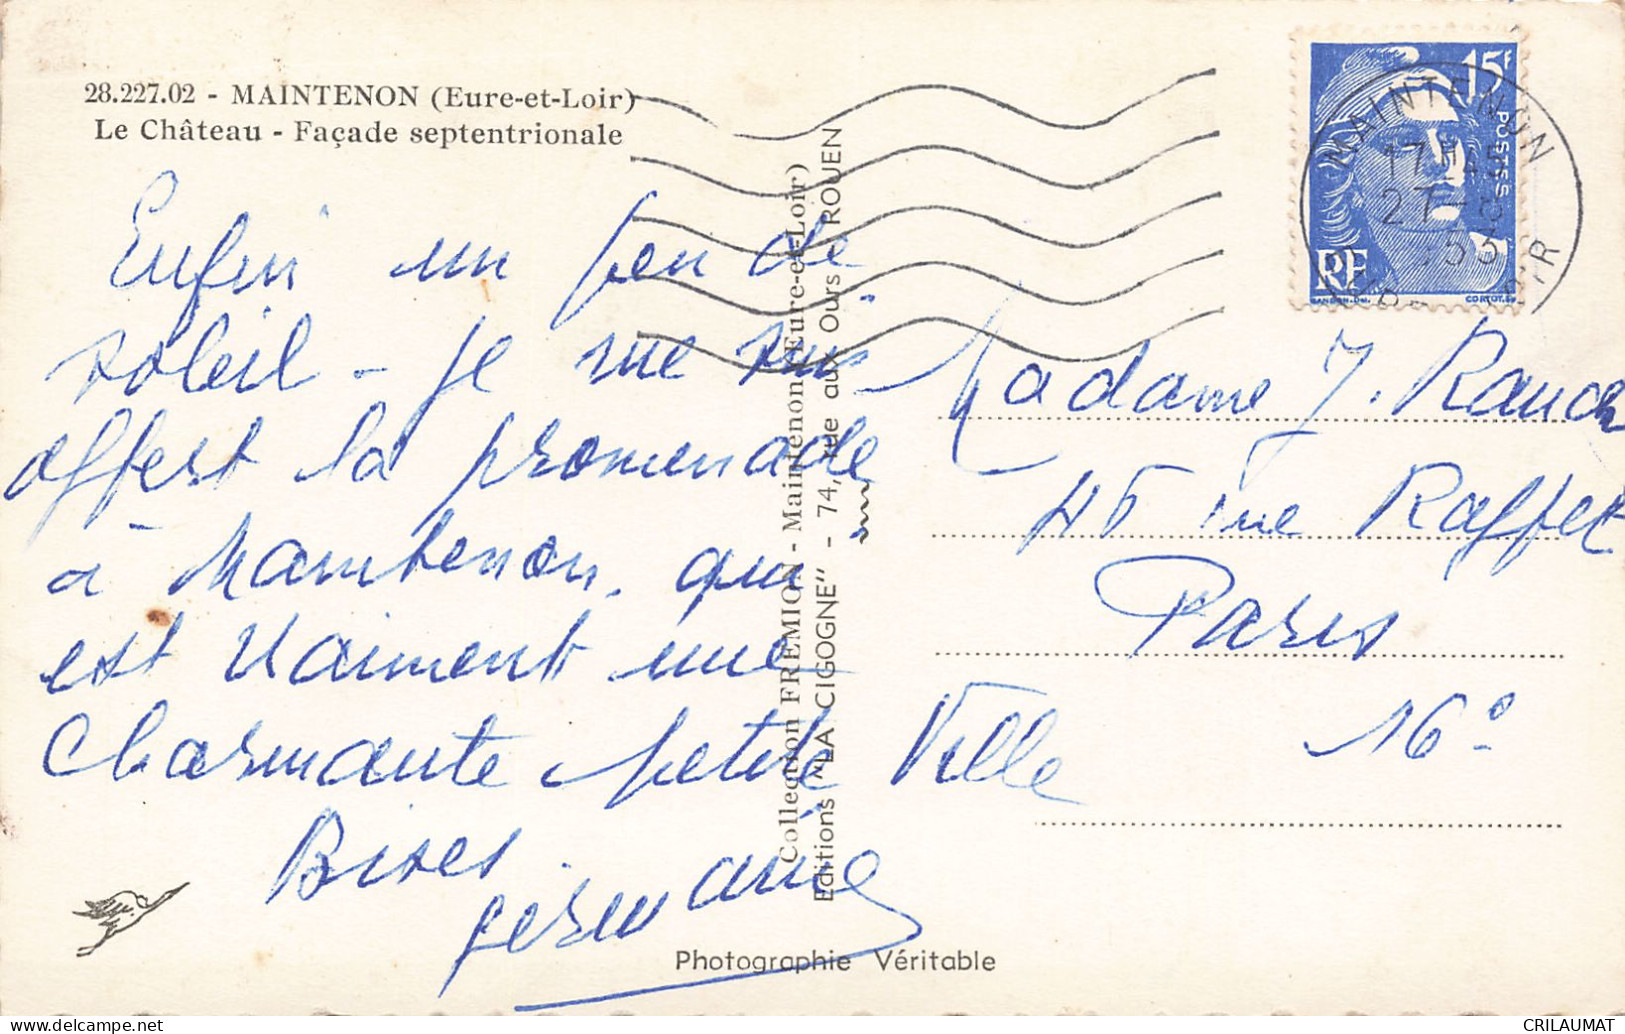 28.227.02 - MAINTENON (Eure-et-Loir)
Le Château - Façade septentrionale
Enfin un peu de
soleil - je me suis
offert la promenade
à Maintenon, qui
est vraiment une
Charmante petite Ville
Bises
germaine
Collection FREMION - Maintenon (Eure-et-Loir)
Editions "LA CIGOGNE" - 74, rue aux Ours - ROUEN
15F
POSTES
RF
GANDON.DEL
CORTOT.SC
MAINTENON
17H45
27-8
1953
Madame J.
45 rue Raffet
Paris
16e
Photographie Véritable
CRILAUMAT